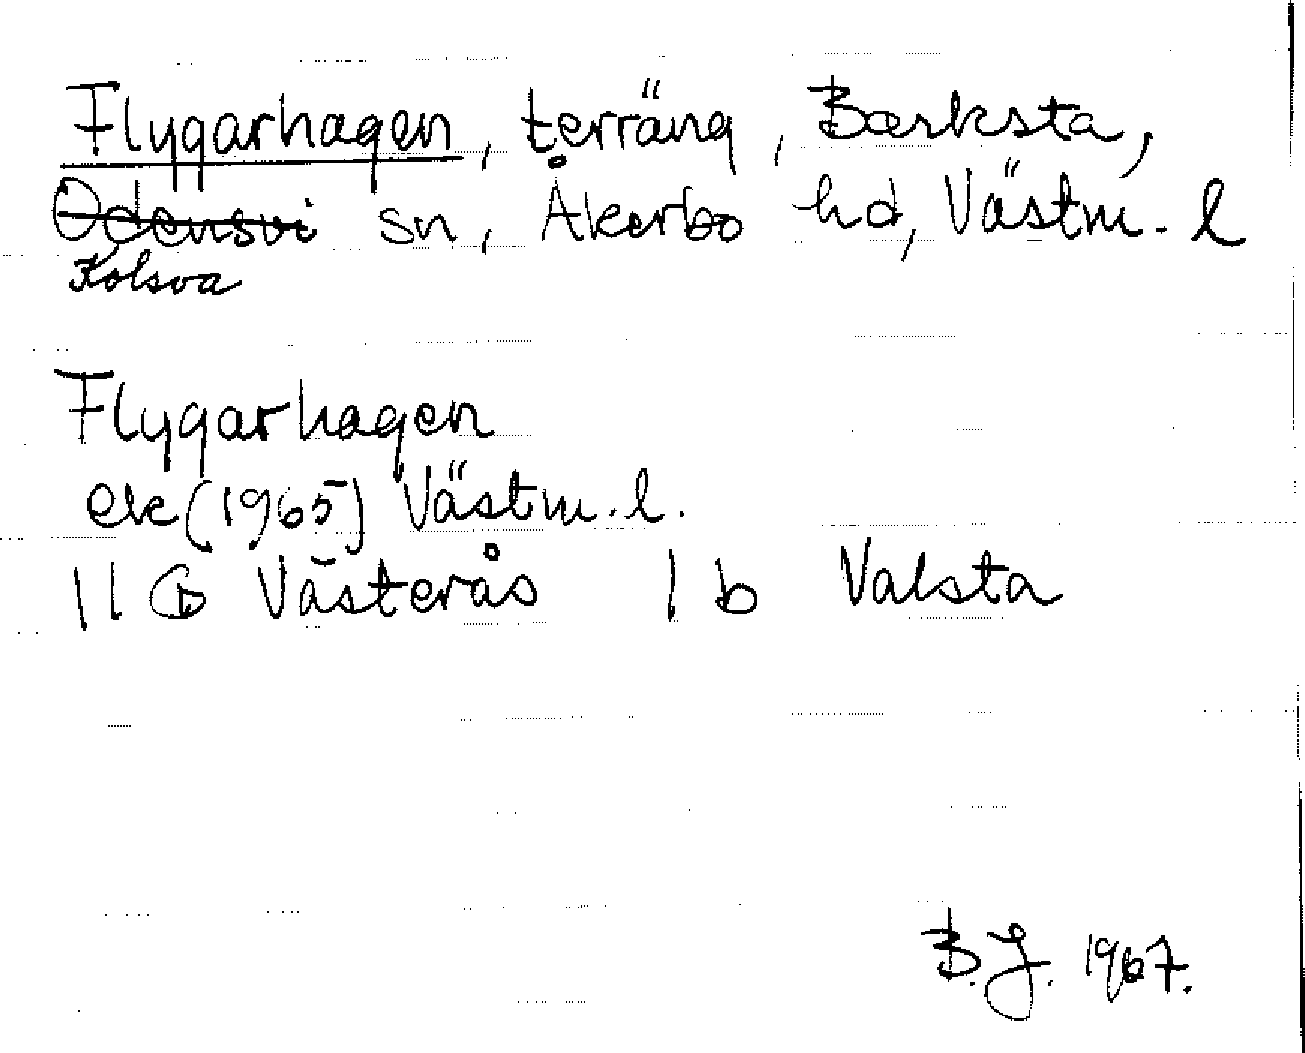 Flygarhagen, terräng, Bærksta,
Odensvi sn, Åkerbo hd, Västm. l
Kolsva
Flygarhagen
ek (1965) Västm. l.
11 G Västerås 1 b Valsta
B.J. 1967.